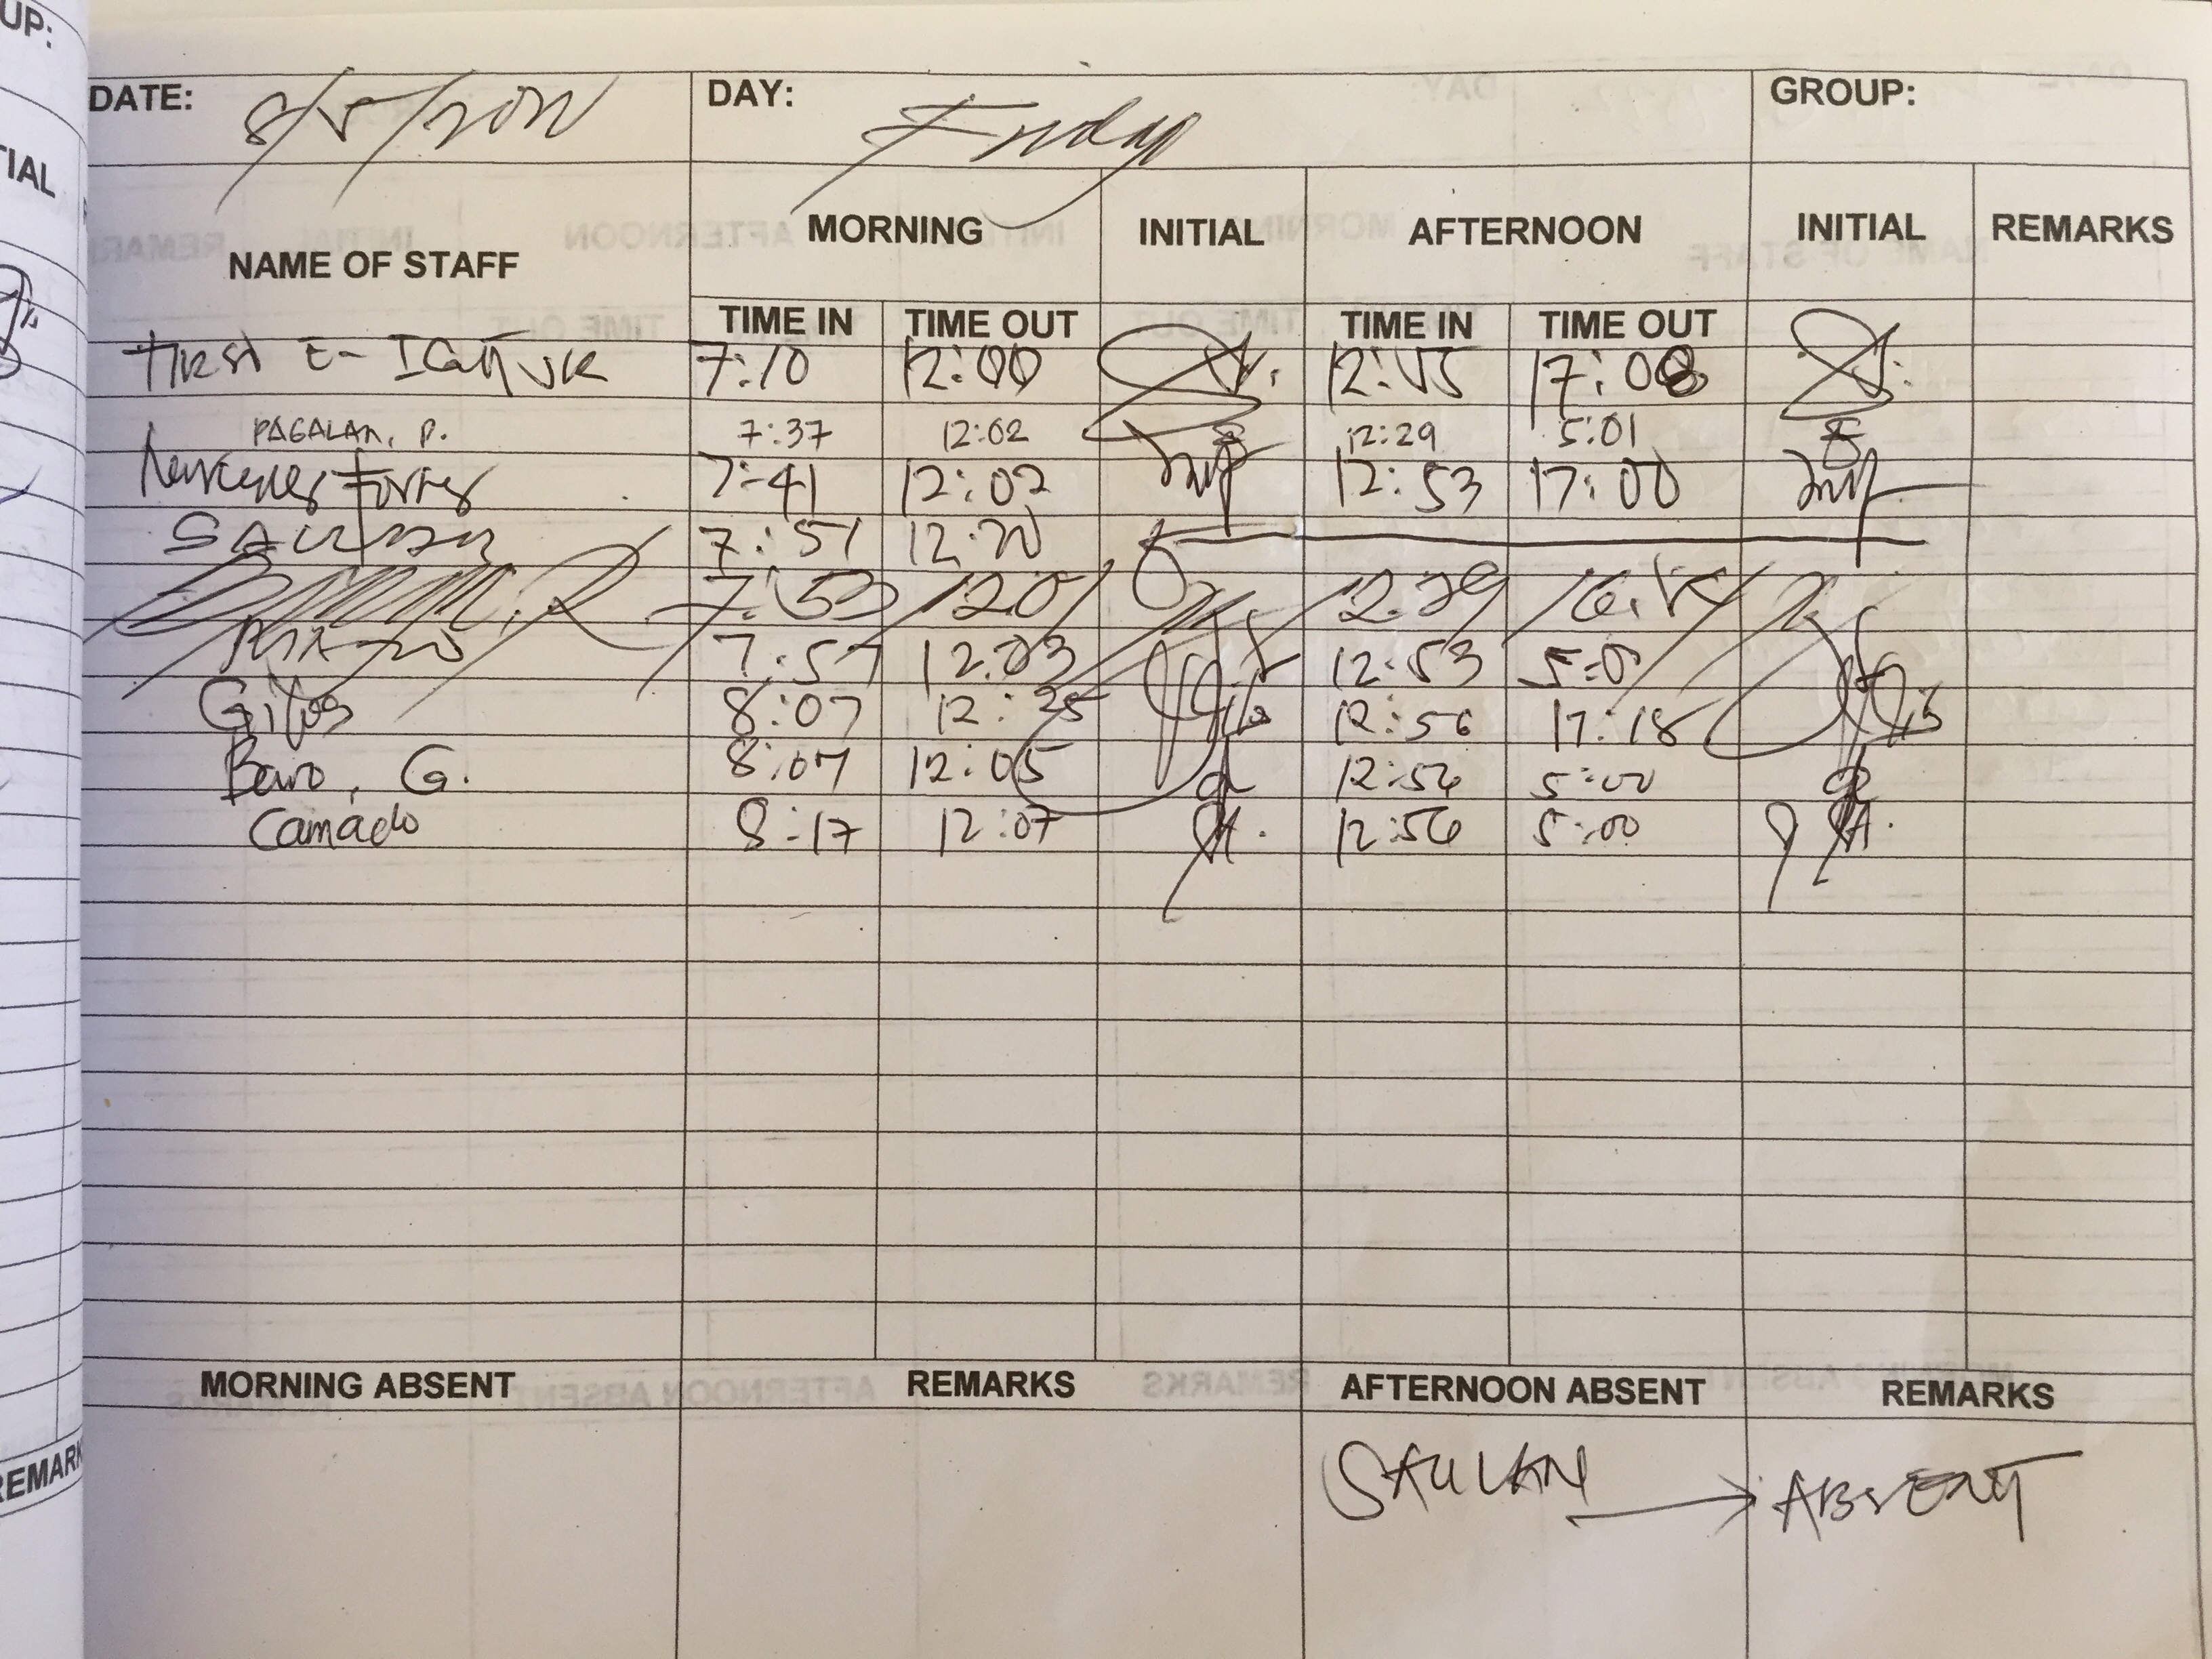 UP:
TIAL
REMARK
DATE: 8/5/2022 DAY: Friday GROUP:
NAME OF STAFF MORNING INITIAL AFTERNOON INITIAL REMARKS
TIME IN TIME OUT TIME IN TIME OUT
7:10 12:00 12:15 17:08
PAGALAN, P. 7:37 12:02 12:29 5:01
Mercedes Torres 7:41 12:02 12:53 17:00
SAULAN 7:51 12:20
7:53 1201 12:29
7:57 12:03 12:53
Gifos 8:07 12:25 12:56 17:18
Bavo, G. 8:07 12:05 12:56 5:00
Camado 8:17 12:07 12:56 5:00
MORNING ABSENT REMARKS AFTERNOON ABSENT REMARKS
SAULAN → ABSENT